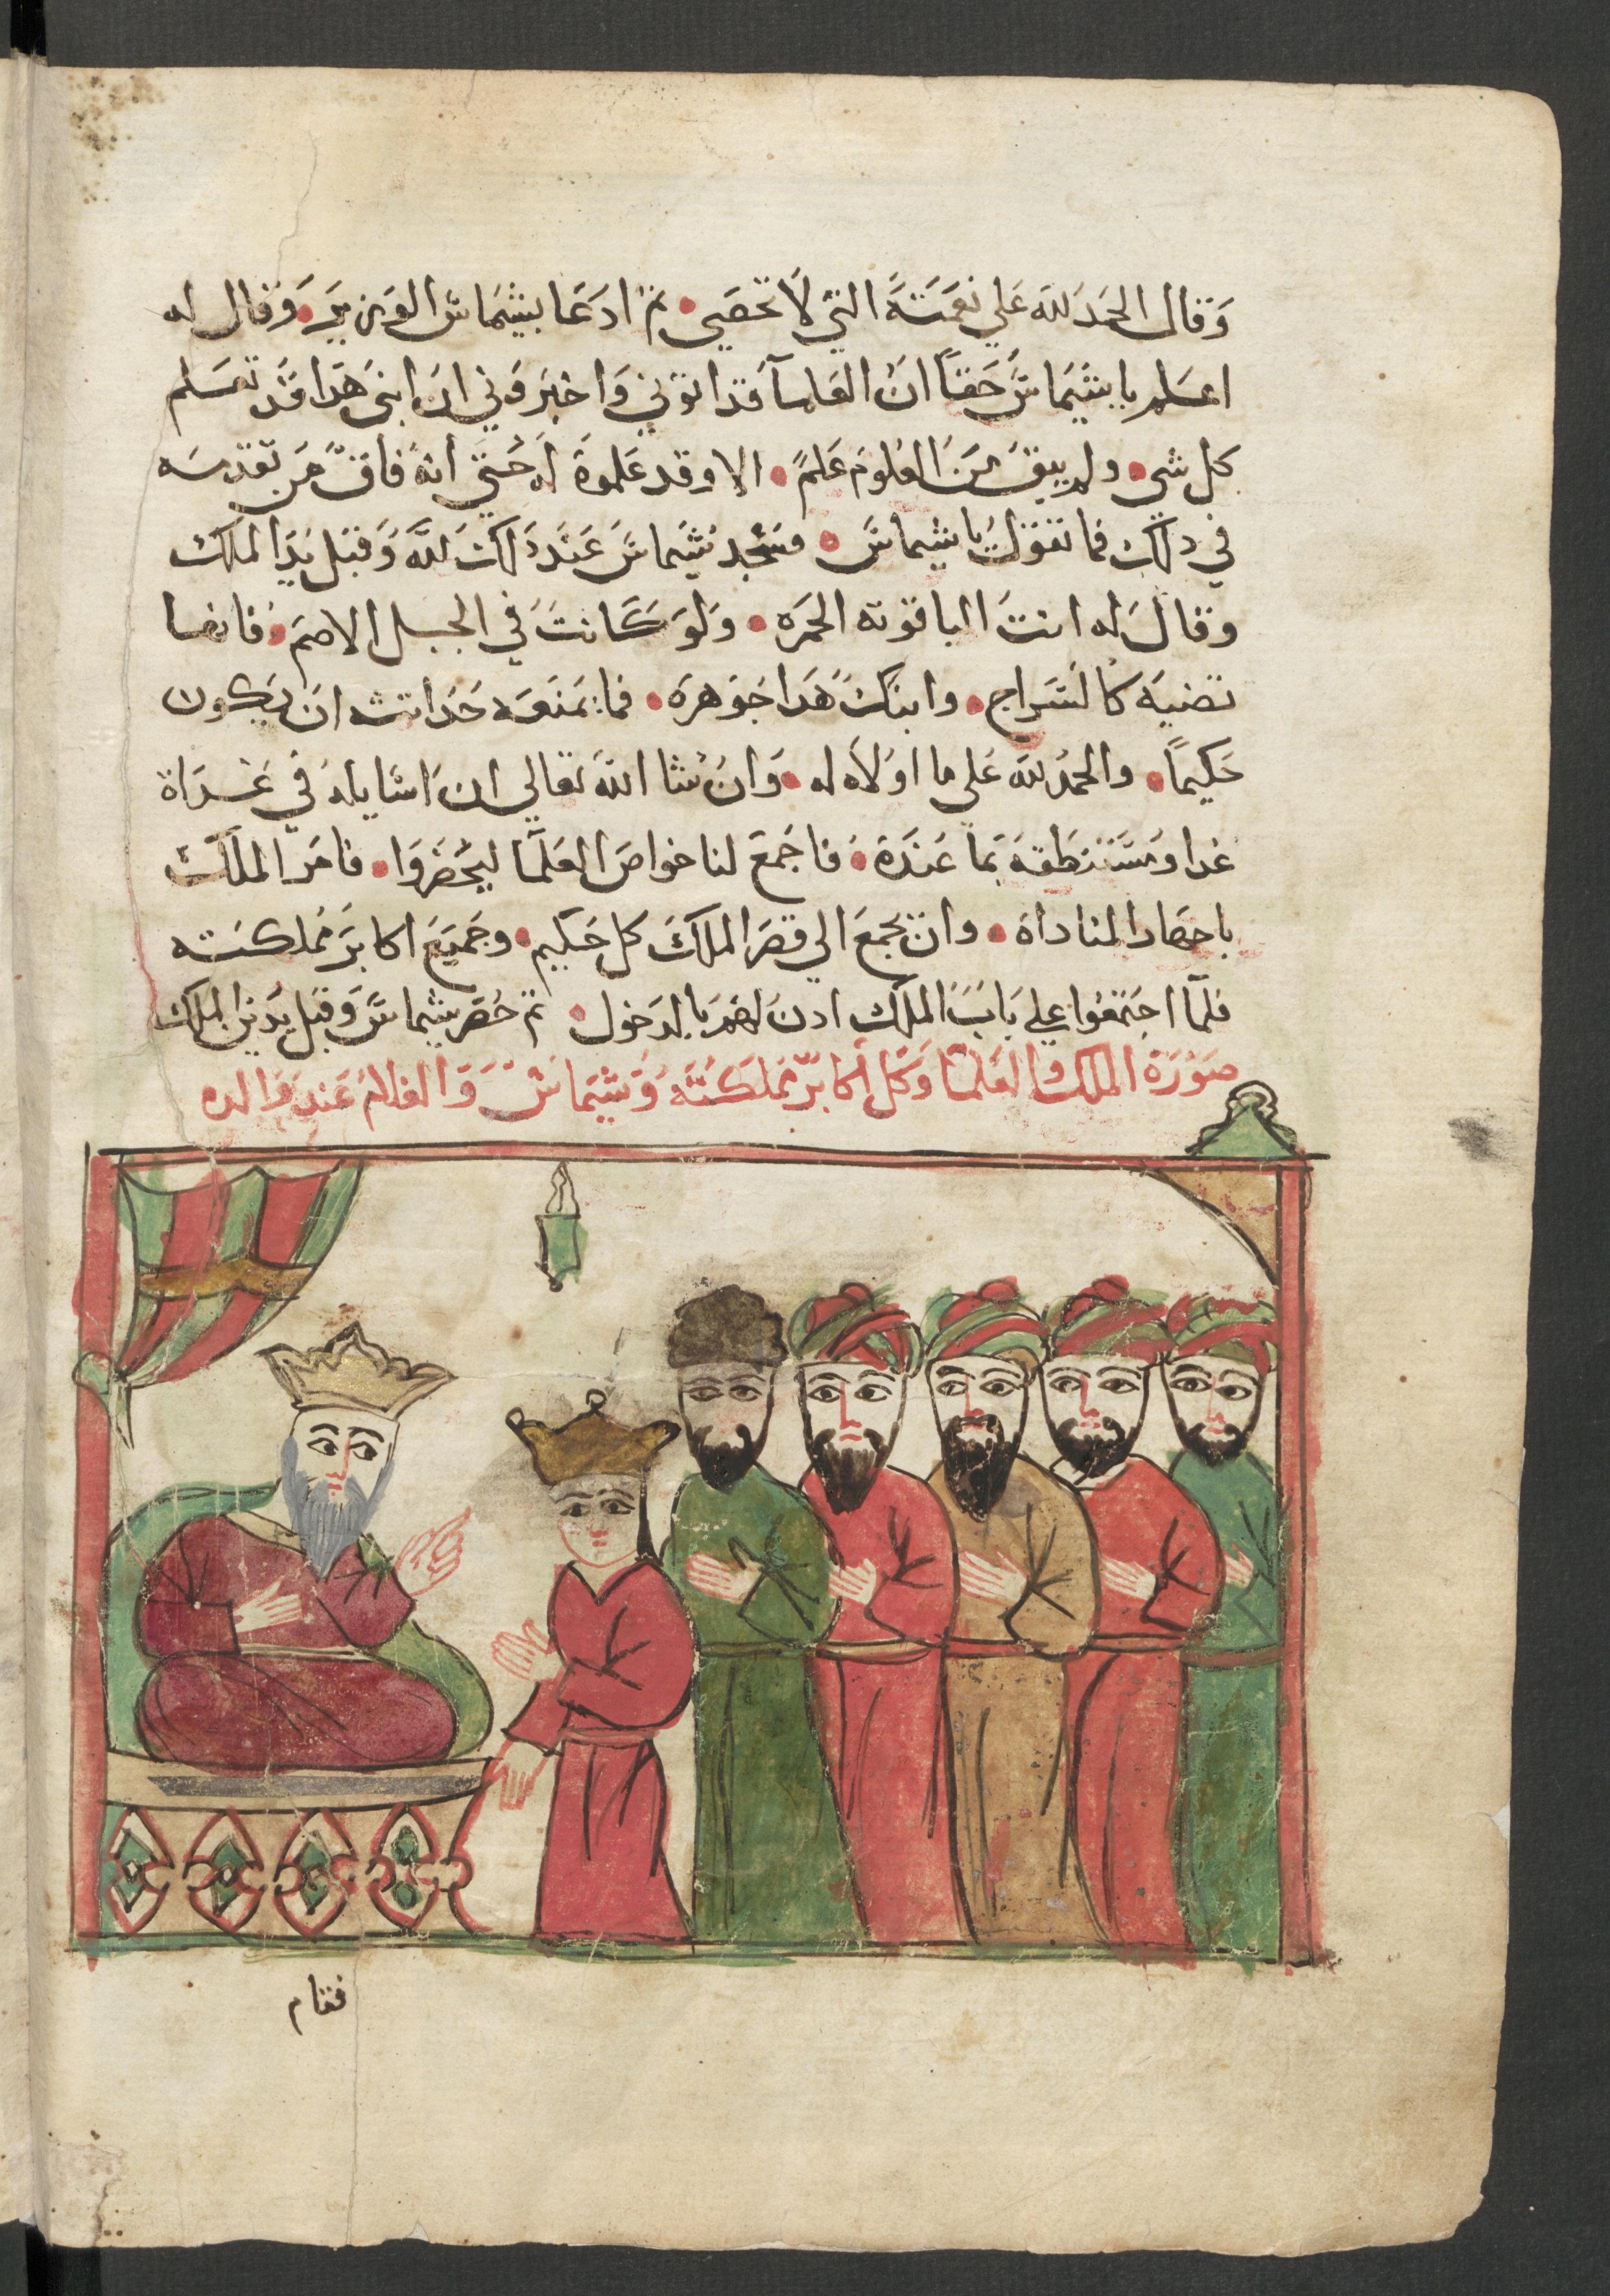 وَقال الحَمَد لله عَلي نعَمَتهَ التي لاَ تحصَي • تمَ ادعَا بشِيمَاسَ الوَزيرَ • وَقال له
اعلم يا شِيمَاسَ حَقاً انَ العَلمآ قدَ اتوَني وَاخبرَوَني انَ ابنيَ هَدَا قدَ تعَلم
كل شي • ولم يبقَ مَنَ العُلومَ عَلمً • الا وقد عَلموةَ له حَتيَ انهُ فاقَ مَن تقدمَه
في دلَك فما تقوَل يا شيماسَ • فسَجَد شيَماسَ عَندَ دَلكَ للهَ وَقبَل يدَ الملكَ
وقال له انتَ الياقوته الحمَره • وَلوَ كَانتَ في الجبل الاصمَ • فانها
تضيَه كالسَراج • وابنكَ هَدَا جَوَهرَه • فما يمَنعَه حَدَاتته انَ يكون
حَكيماً • والحمُد للهَ عَلي ما اوَلاَه له • وَانَ شا اللهَ تعَالي انَ اسَايلهُ فيَ غَدَاة
غدا وَمسَتنطقهَ بمَا عَندَةَ • فاجَمعَ لنا خواصَ العَلمَا ليحَضرَوَا • فامرَ الملَكَ
باحضار المناداة • وان تجمعَ الي قصرَ الملكَ كل حَكيم • وجَميعَ اكابرَ مَملكته
فلمَّا اجتَمَعُوا علي بَابَ الملكَ ادنَ لهُمَ بالدخول • تم حَضر شيماسَ وَقبل يدَين الملكَ
صوَرَة الملك والعَلمَا وَكل اكابرَ مَملكَتهَ وَشيَماسَ وَالغلامُ عَندَ وَالده
فقام